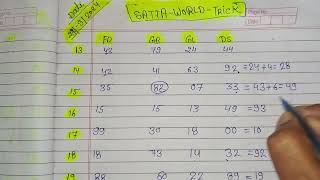 SATTA-WORLD-Trick
FD GB GL DS
13 42 79 24 44
14 42 41 63 92 =24+4=28
15 35 82 07 33 =43+6=49
16 15 15 13 49 =93
17 99 30 18 00 =10
18 73 14 32 =92
19 88 60 22 89 =19